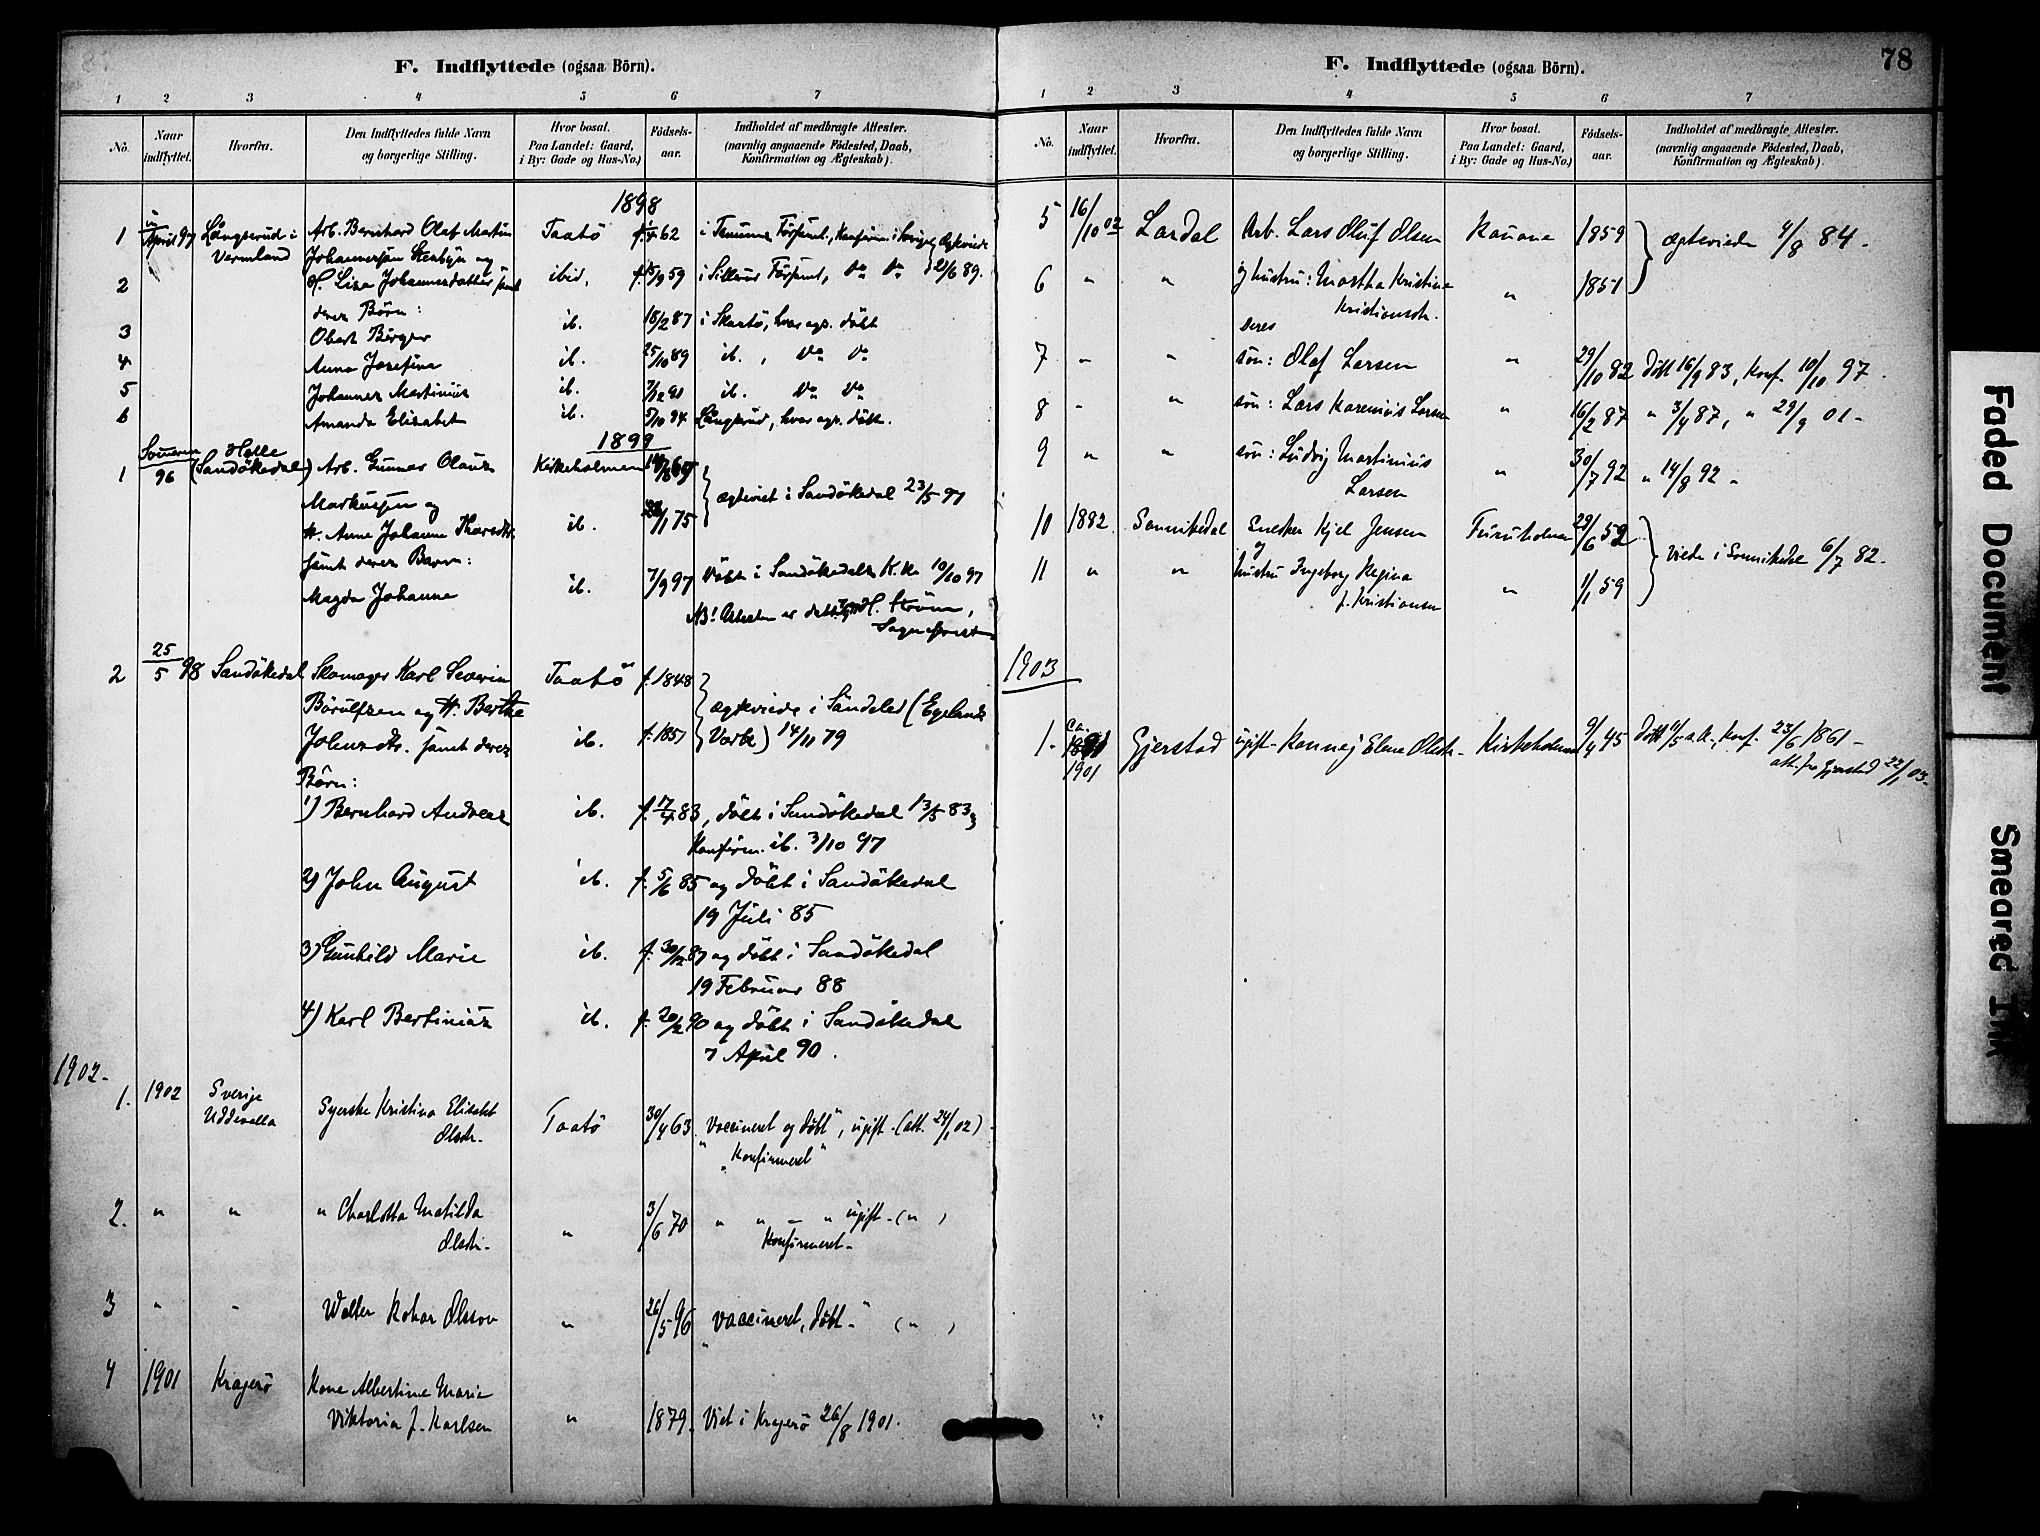 F. Indflyttede (ogsaa Börn).
1 2 3 4 5 6 7
No.
Naar indflyttet.
Hvorfra.
Den Indflyttedes fulde Navn
og borgerlige Stilling.
Hvor bosat.
Paa Landet: Gaard,
i By: Gade og Hus-No.)
Fødsels-
aar.
Indholdet af medbragte Attester.
(navnlig angaaende Fødested, Daab,
Konfirmation og Ægteskab).
1898
1 April 97 Långserud i Arb. Bernhard Olaf Martin Taatö 62
Vermland Johannesson Stenbyn og
2 H. Lisa Johannesdatter samt ibid. f. 15/9 59 i Sillerud Församl, do do 21/6 89.
deres Børn:
3 Obert Birger ib. 18/2 87 i Skaatö, hvor ogs. døbt
4 Anna Josefina ib. 25/10 89 ib., do do
5 Johannes Martinius ib. 7/12 91 ib. do do
6 Amanda Elisabet ib. 5/10 94 Långserud, hvor ogs. døbt.
1899
1 Sommeren 96 Helle (Sandökedal) Arb. Gunnar Olaus Kirkeholmen
Markussen og ægteviet i Sandökedal 23/5 97
H. Anne Johanne Thorsdtr. ib. 1/75
samt deres Barn:
Magda Johanne ib. 7/9 97 Døbt i Sandökedals K. ke 10/10 97
NB! Attesten er dat. H. Ström,
Sogneprest
2 25/5 98 Sandökedal Skomager Karl Severin Taatö f. 1848
Börulfsen og H. Berthe ægteviede i Söndeled (Egelands
Johnsdtr. samt deres ib. f. 1857 Værk) 14/11 79
Børn:
1) Bernhard Andreas ib. f. 17/4 83, døbt i Sandökedal 13/5 83,
Konfirm. ib. 3/10 97
2) John August ib. f. 5/6 85 og døbt i Sandökedal
19 Juli 85
3) Gunhild Marie ib. f. 30/12 87 og døbt i Sandökedal
19 Februar 88
4) Karl Bertinius ib. f. 20/2 90 og døbt i Sandökedal
7 April 90.
1902.
1. 1902 Sverige Syerske Kristina Elisabet Taatö 30/4 63 "vaccineret og døbt", ugift (att. 24/1 02)
Uddevalla Olsdr. "Konfirmeret"
2. " " " Charlotta Matilda " 3/6 70 " " - " ugift - ( " )
Olsdr. Konfirmeret -
3 " " Walter Olsson " 26/5 96 "vaccineret, døbt - " ( " )
4 1901 Kragerö Kone Albertine Marie
Viktoria f. Karlsen " 1879. Viet i Kragerö 26/8 1901.
F. Indflyttede (ogsaa Börn). 78
1 2 3 4 5 6 7
No.
Naar indflyttet.
Hvorfra.
Den Indflyttedes fulde Navn
og borgerlige Stilling.
Hvor bosat.
Paa Landet: Gaard,
i By: Gade og Hus-No.)
Fødsels-
aar.
Indholdet af medbragte Attester.
(navnlig angaaende Fødested, Daab,
Konfirmation og Ægteskab).
5 16/10 02 Lardal Arb. Lars Oluf Olsen 1859 Ægteviede 4/8 84 -
6 " " og hustru: Martha Kristine " 1851
Kristiansdr.
deres
7 " " søn: Olaf Larsen " 29/10 82 døbt 16/9 83, Konf. 10/10 97.
8 " " søn: Lars Karenius Larsen " 16/2 87 " 3/4 87, " 29/9 01 -
9 " " søn: Ludvig Martinius " 30/7 92 " 14/8 92 -
Larsen
10 1892 Sannikedal Snekker Kjel Jensen Furuholmen 29/6 52
og viede i Sannikedal 6/7 82.
11 " " hustru Ingeborg Regine " 1/1 59
f. Kristiansen
1903
1. ca. Gjerstad ugift Elene Olsdr. Kirkeholmen 9/4 45 døbt 11/5 s. A., Konf. 23/6 1861 -
1901 att. fra Gjerstad 22/1 03.
Faded Document
Smeared Ink